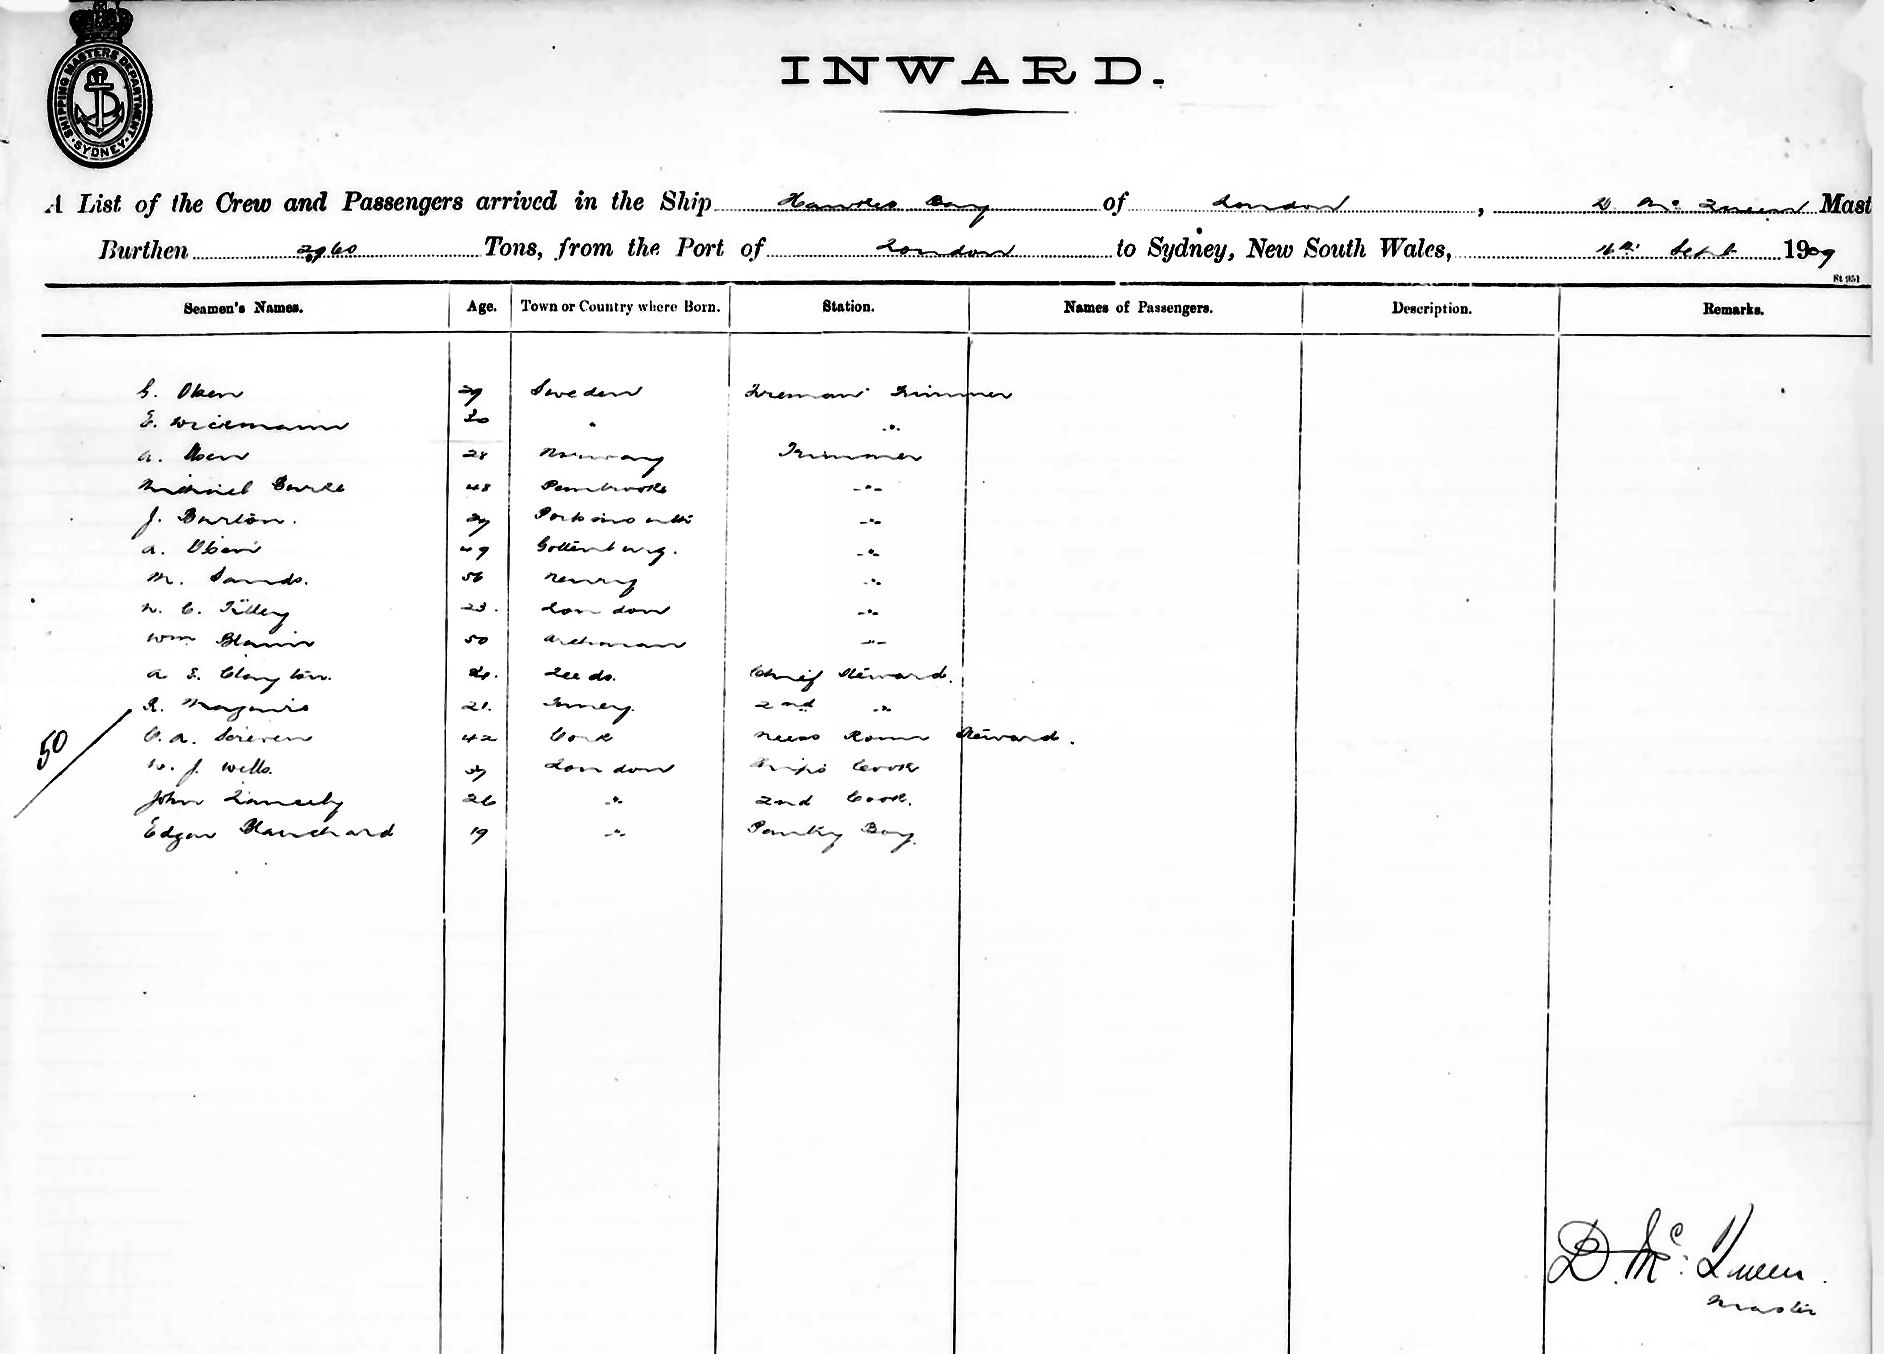 SHIPPING MASTERS DEPARTMENT
SYDNEY
INWARD.
A List of the Crew and Passengers arrived in the Ship Hawkes Bay of London, D. Mc Queen Mast
Burthen Tons, from the Port of London to Sydney, New South Wales, Sept 1909
St 951
Seamen's Names. Age. Town or Country where Born. Station. Names of Passengers. Description. Remarks.
Olsen 29 Sweden Fireman Trimmer
E. 30 " "
A. Olsen 28 Norway Trimmer
Michael Burke 48 Pembroke "
J. Burton. Portsmouth "
A. Olsen 49 Gottenburg. "
M. Sands. 56 Newry "
W. C. Tilley 23. London "
Wm 50 "
A E. Clayton. Leeds. Chief Steward.
R. Maguire 21. 2nd "
C. A. Scriven 42 Cork Mess Room Steward.
W. J. Wells. London Ships Cook
John 26 " 2nd Cook.
Edgar Blanchard 19 " Pantry Boy.
50
D. Mc Queen.
Master